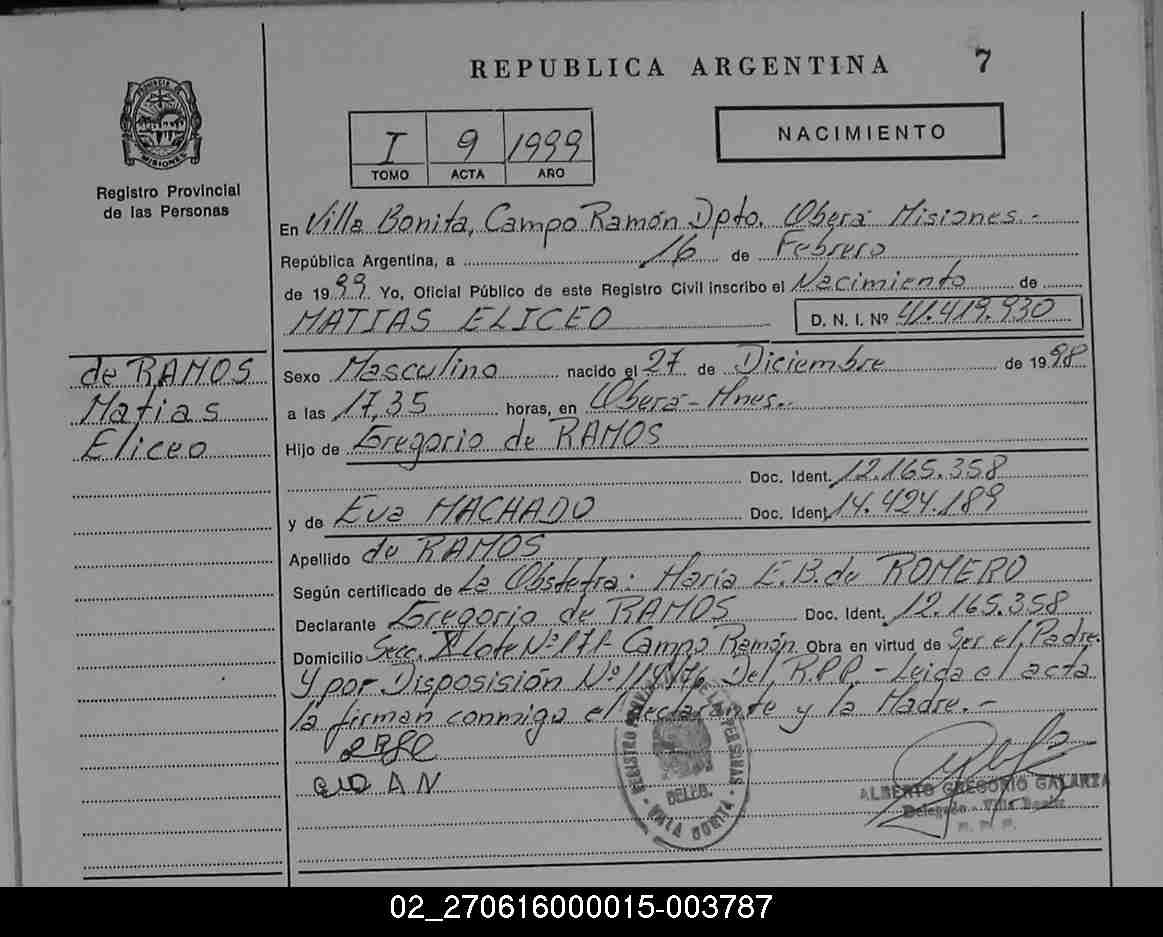 REPUBLICA ARGENTINA 7
PROVINCIA DE
MISIONES
Registro Provincial
de las Personas
I 9 1999
TOMO ACTA AÑO
NACIMIENTO
En Villa Bonita, Campo Ramón Dpto. Oberá Misiones.-
República Argentina, a 16 de Febrero
de 1999 Yo, Oficial Público de este Registro Civil inscribo el Nacimiento de
MATIAS ELICEO D. N. I. Nº 41.419.930
de RAMOS
Matias
Eliceo
Sexo Masculino nacido el 27 de Diciembre de 1998
a las 17,35 horas, en Oberá-Mnes.
Hijo de Gregorio de RAMOS
Doc. Ident. 12.165.358
y de Eva MACHADO Doc. Ident. 14.424.189
Apellido de RAMOS
Según certificado de La Obstetra: María E.B. de ROMERO
Declarante Gregorio de RAMOS Doc. Ident. 12.165.358
Domicilio Secc. X Lote Nº 171- Campo Ramón Obra en virtud de Ser el Padre.
Y por Disposisión Nº 118/76 Del R.P.P.- Leida el acta
la firman conmigo el declarante y la Madre.-
DELEG.
VILLA BONITA
ALBERTO GREGORIO GALARZA
Delegado - Villa Bonita
R. P. P.
02_270616000015-003787